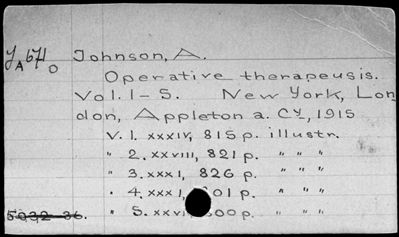 Johnson, A.
Operative therapeusis.
Vol. 1-5. New York, Lon
don, Appleton a. Cy, 1915
V. 1. xxxiv, 815 p. illustr.
" 2. xxviii, 821 p. " " "
" 3. xxxi, 826 p. " " "
" 4. xxxi, 01 p. " " "
5032-36. " 5. xxvi, 00 p. " " "